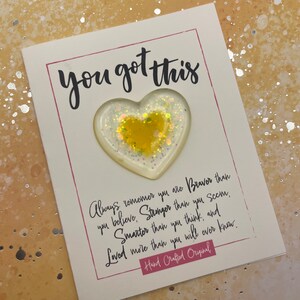 You got this
Always remember you are Braver than
you believe, Stronger than you seem,
Smarter than you think, and
Loved more than you will ever know.
Hand Crafted Original